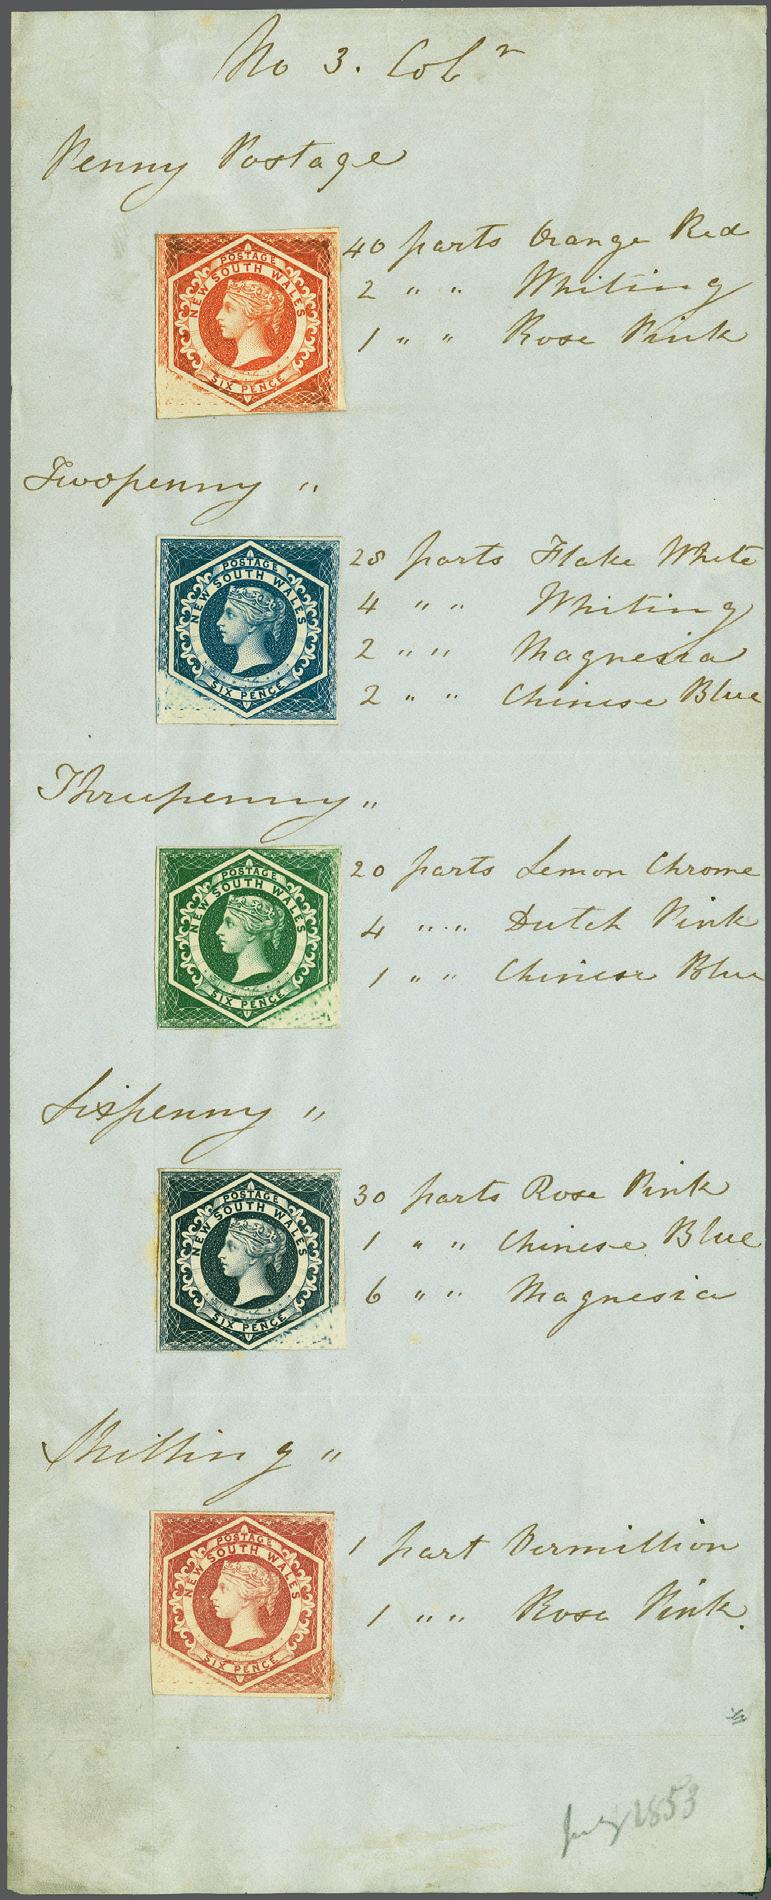 No 3. Colr
Penny Postage
POSTAGE
NEW SOUTH WALES
SIX PENCE
40 parts Orange Red
2 " " Whiting
1 " " Rose Pink
Twopenny "
POSTAGE
NEW SOUTH WALES
SIX PENCE
28 parts Flake White
4 " " Whiting
2 " " Magnesia
2 " " Chinese Blue
Threepenny "
POSTAGE
NEW SOUTH WALES
SIX PENCE
20 parts Lemon Chrome
4 " " Dutch Pink
1 " " Chinese Blue
Sixpenny "
POSTAGE
NEW SOUTH WALES
SIX PENCE
30 parts Rose Pink
1 " " Chinese Blue
6 " " Magnesia
Shilling "
POSTAGE
NEW SOUTH WALES
SIX PENCE
1 part Vermillion
1 " " Rose Pink.
July 1853